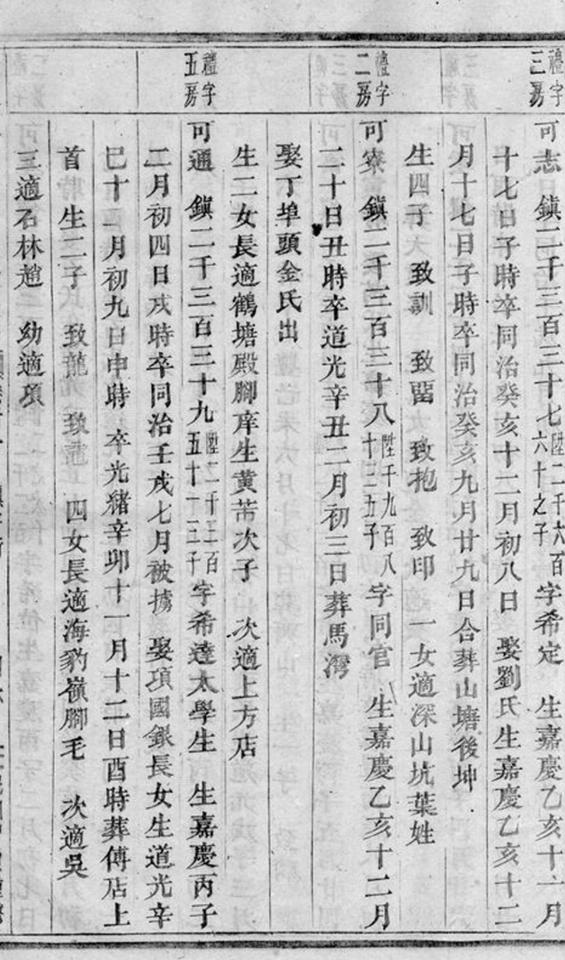 禮字三房
可志 鎮二千三百三十七陞二千六百六十之子字希定 生嘉慶乙亥十一月
十七日子時卒同治癸亥十二月初八日 娶劉氏生嘉慶乙亥十二
月十七日子時卒同治癸亥九月廿九日合葬山塘後坤
生四子 致訓 致畱 致抱 致印 一女適深山坑葉姓
禮字二房
可寮 鎮二千三百三十八陞千九百八十三五子字同官 生嘉慶乙亥十二月
二十日丑時卒道光辛丑二月初三日葬馬灣
娶丁埠頭金氏出
生二女長適鶴塘殿腳庠生黄芾次子 次適上方店
禮字五房
可通 鎮二千三百三十九陞二千三百五十一三子字希達太學生 生嘉慶丙子
二月初四日戌時卒同治壬戌七月被擄 娶項國銀長女生道光辛
巳十一月初九日申時 卒光豬辛卯十一月十二日酉時葬傅店上
首 生二子 致龍 致 四女長適海豹嶺腳毛 次適吳
三適石林趙 幼適項